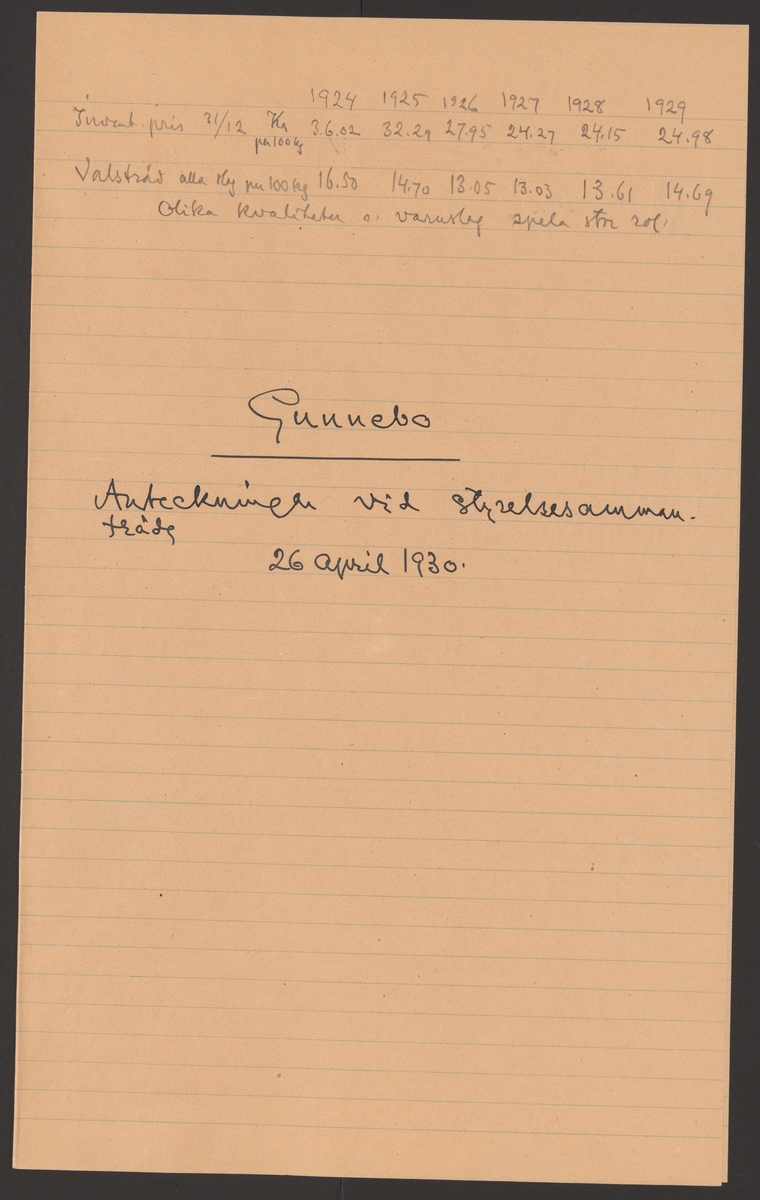 1924 1925 1926 1927 1928 1929
Invent. pris 31/12 Kr 36.02 32.29 27.95 24.27 24.15 24.98
per 100 kg
Valstråd alla per 100 kg 16.50 14.70 13.05 13.03 13.61 14.69
Olika kvaliteter o. varuslag spela stor roll
Gunnebo
Anteckningar vid styrelsesamman-
träde
26 april 1930.